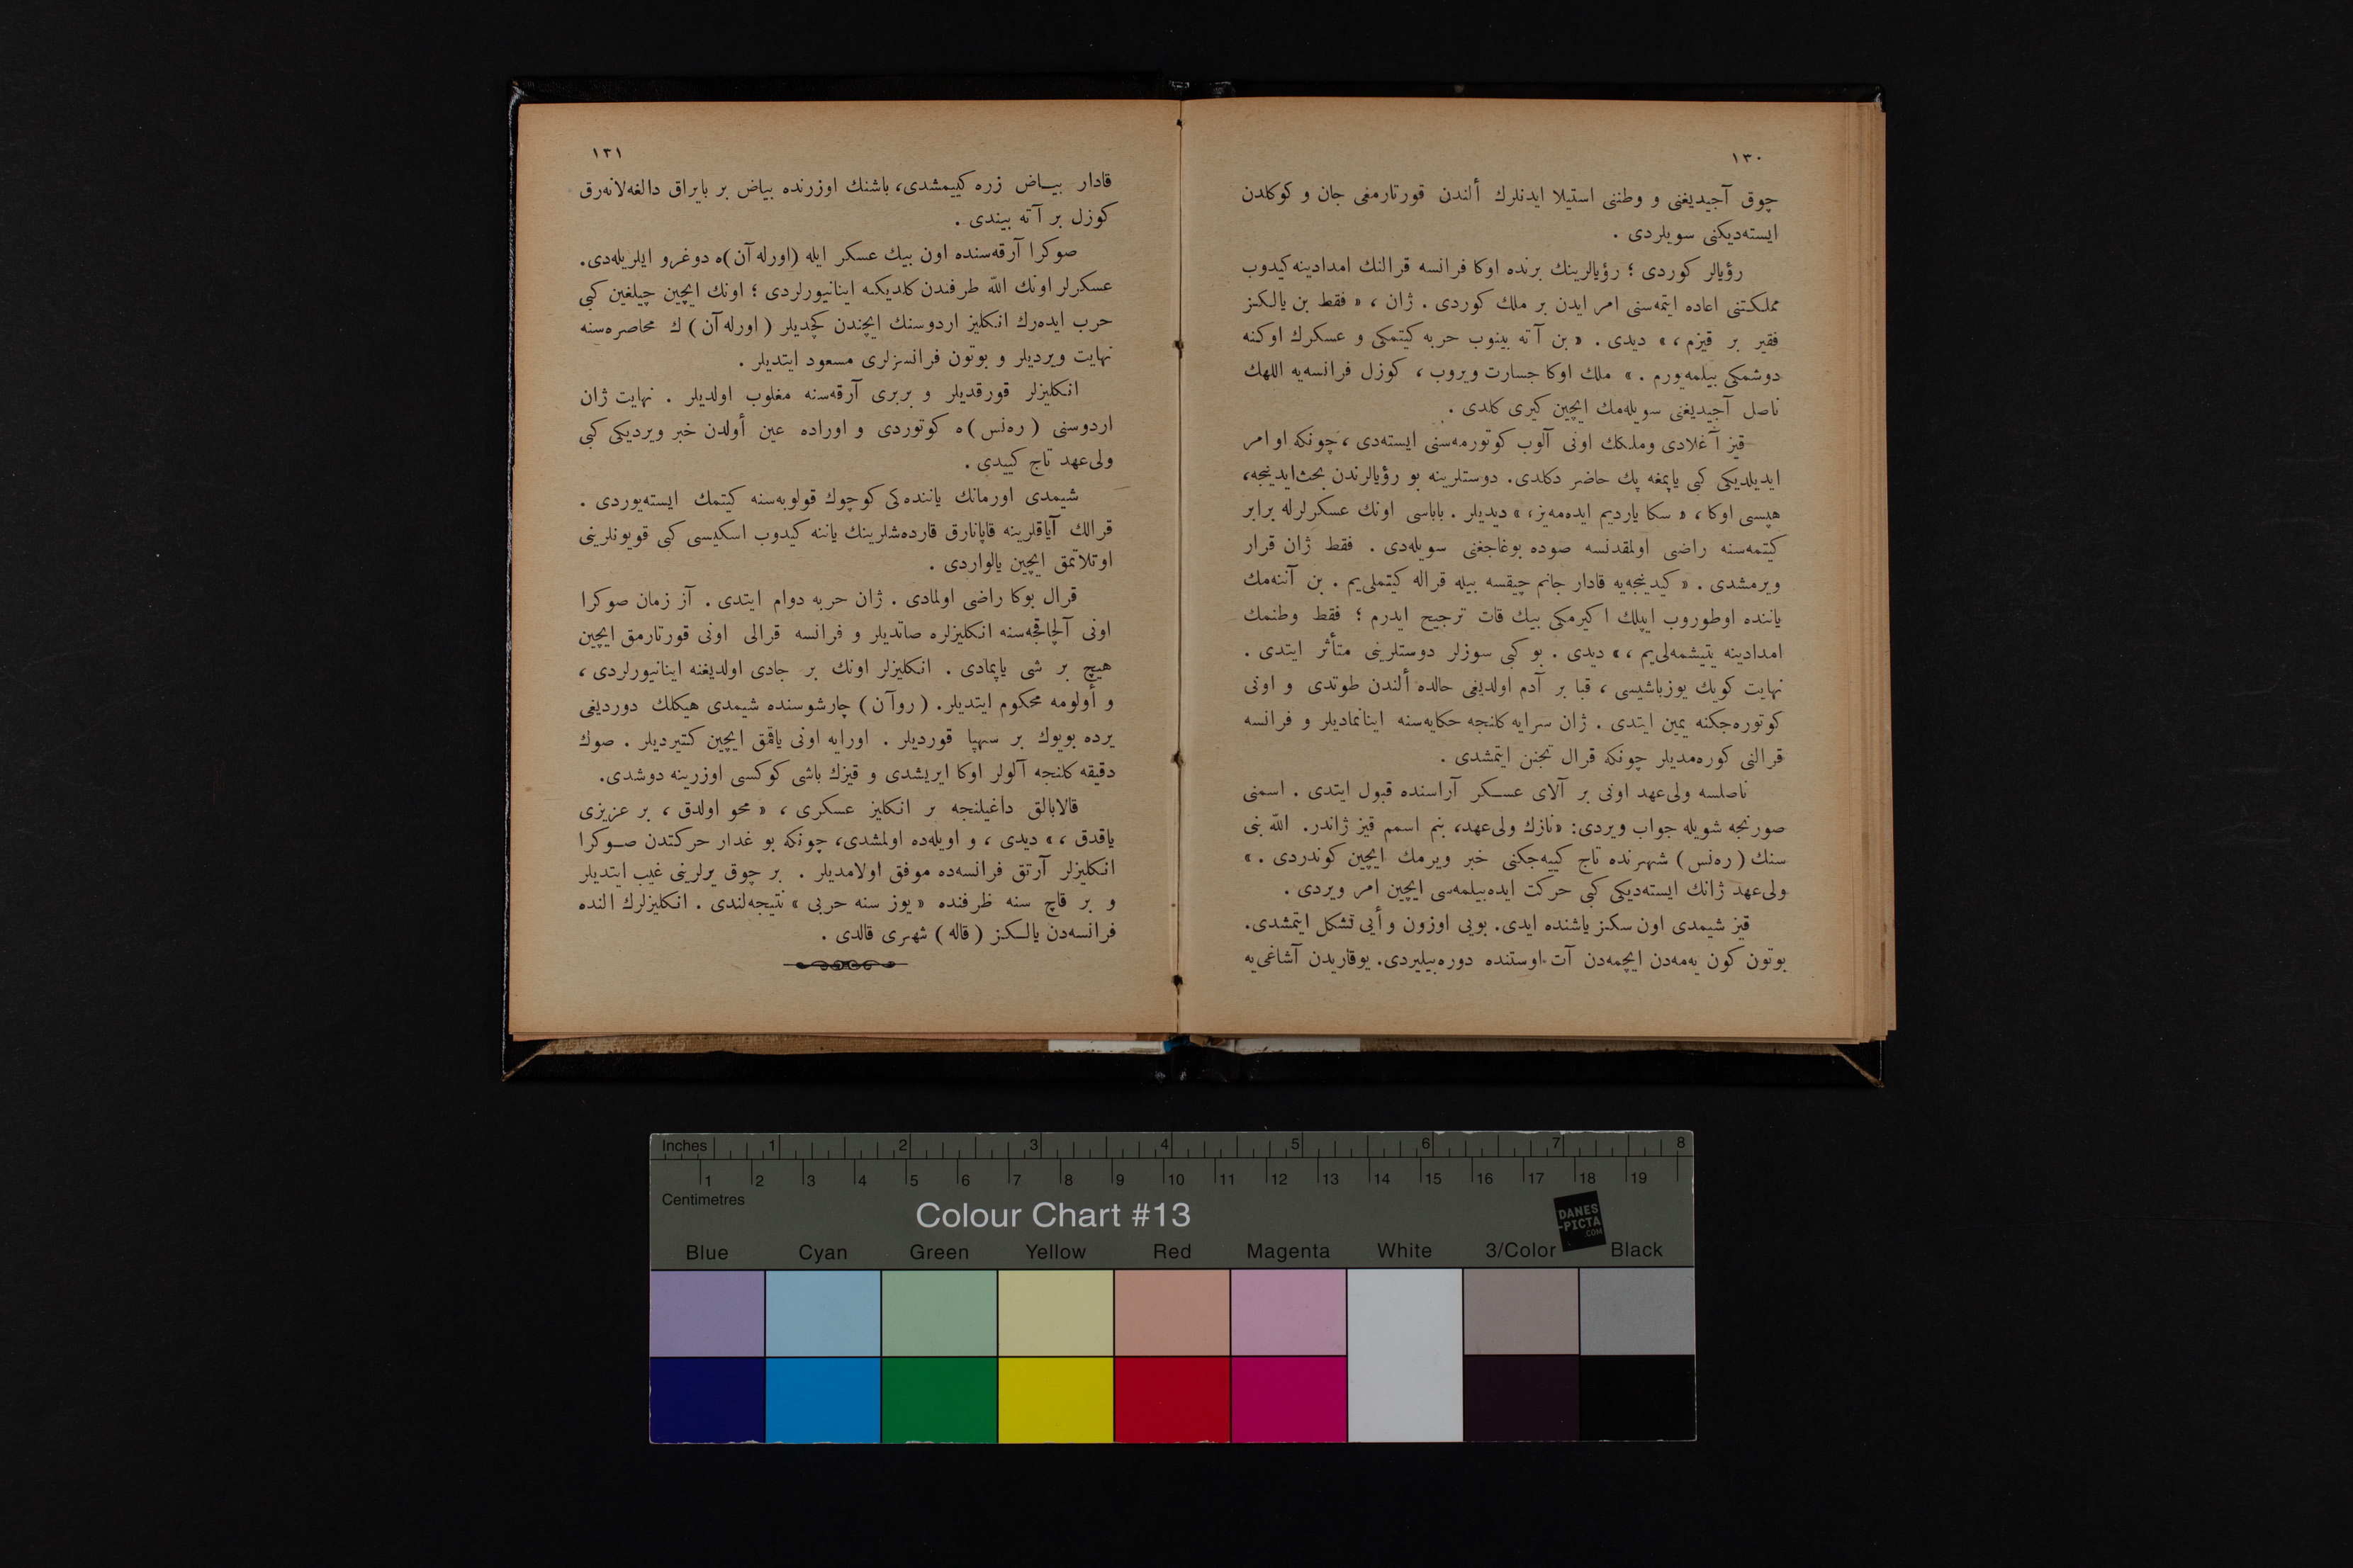 ١٣٠
چوق آجیدیغنی و وطننی استیلا ایدنلرك ألندن قورتارمغی جان و كوكلدن
ایسته‌دیكنی سویلردی .
رؤیالر كوردی ؛ رؤیالرینك برنده اوكا فرانسه قرالنك امدادینه كیدوب
مملكتنی اعاده ایتمه‌سنی امر ایدن بر ملك كوردی . ژان ، « فقط بن یالكز
فقیر بر قیزم ، » دیدی . « بن آته بینوب حربه كیتمكی و عسكرك اوكنه
دوشمكی بیلمه‌یورم . » ملك اوكا جسارت ویروب ، كوزل فرانسه‌یه اللهك
ناصل آجیدیغنی سویله‌مك ایچین كیری كلدی .
قیز آغلادی وملكك اونی آلوب كوتورمه‌سنی ایسته‌دی ، چونكه او امر
ایدیلدیكی كبی یاپمغه پك حاضر دكلدی. دوستلرینه بو رؤیالرندن بحث‌ایدینجه،
هپسی اوكا ، « سكا یاردیم ایده‌مه‌یز، » دیدیلر . باباسی اونك عسكرلرله برابر
كیتمه‌سنه راضی اولمقدنسه صوده بوغاجغنی سویله‌دی . فقط ژان قرار
ویرمشدی . « كیدینجه‌یه قادار جانم چیقسه بیله قراله كیتملی‌یم . بن آننه‌مك
یاننده اوطوروب ایپلك اكیرمكی بیك قات ترجیح ایدرم ؛ فقط وطنمك
امدادینه یتیشمه‌لی‌یم ، » دیدی . بو كبی سوزلر دوستلرینی متأثر ایتدی .
نهایت كویك یوزباشیسی ، قبا بر آدم اولدیغی حالده ألندن طوتدی و اونی
كوتوره‌جكنه یمین ایتدی . ژان سرایه كلنجه حكایه‌سنه اینانمادیلر و فرانسه
قرالنی كوره‌مدیلر چونكه قرال تجنن ایتمشدی .
ناصلسه ولی‌عهد اونی بر آلای عسكر آراسنده قبول ایتدی . اسمنی
صورنجه شویله جواب ویردی: «نازك ولی‌عهد، بنم اسمم قیز ژاندر. الله بنی
سنك ( ره‌نس ) شهرنده تاج كییه‌جكنی خبر ویرمك ایچین كوندردی . »
ولی‌عهد ژانك ایسته‌دیكی كبی حركت ایده‌بیلمه‌سی ایچین امر ویردی .
قیز شیمدی اون سكز یاشنده ایدی. بویی اوزون و أیی تشكل ایتمشدی.
بوتون كون یه‌مه‌دن ایچمه‌دن آت اوستنده دوره‌بیلیردی. یوقاریدن آشاغی‌یه
١٣١
قادار بیاض زره كییمشدی، باشنك اوزرنده بیاض بر بایراق دالغه‌لانه‌رق
كوزل بر آته بیندی .
صوكرا آرقه‌سنده اون بیك عسكر ایله (اورله‌آن)ه دوغرو ایلریله‌دی.
عسكرلر اونك الله طرفندن كلدیكنه اینانیورلردی ؛ اونك ایچین چیلغین كبی
حرب ایده‌رك انكلیز اردوسنك ایچندن كچدیلر ( اورله‌آن ) ك محاصره‌سنه
نهایت ویردیلر و بوتون فرانسزلری مسعود ایتدیلر .
انكلیزلر قورقدیلر و بربری آرقه‌سنه مغلوب اولدیلر . نهایت ژان
اردوسنی ( ره‌نس )ه كوتوردی و اوراده عین أولدن خبر ویردیكی كبی
ولی‌عهد تاج كییدی .
شیمدی اورمانك یاننده‌كی كوچوك قولوبه‌سنه كیتمك ایسته‌یوردی .
قرالك آیاقلرینه قاپانارق قارده‌شلرینك یاننه كیدوب اسكیسی كبی قویونلرینی
اوتلاتمق ایچین یالواردی .
قرال بوكا راضی اولمادی . ژان حربه دوام ایتدی . آز زمان صوكرا
اونی آلچاقجه‌سنه انكلیزلره صاتدیلر و فرانسه قرالی اونی قورتارمق ایچین
هیچ بر شی یاپمادی . انكلیزلر اونك بر جادی اولدیغنه اینانیورلردی ،
و أولومه محكوم ایتدیلر. ( روآن ) چارشوسنده شیمدی هیكلك دوردیغی
یرده بویوك بر سهپا قوردیلر . اورایه اونی یاقمق ایچین كتیردیلر . صوك
دقیقه كلنجه آلولر اوكا ایریشدی و قیزك باشی كوكسی اوزرینه دوشدی.
قالابالق داغیلنجه بر انكلیز عسكری ، « محو اولدق ، بر عزیزی
یاقدق ، » دیدی ، و اویله‌ده اولمشدی، چونكه بو غدار حركتدن صوكرا
انكلیزلر آرتق فرانسه‌ده موفق اولامدیلر . بر چوق یرلرینی غیب ایتدیلر
و بر قاچ سنه ظرفنده « یوز سنه حربی » نتیجه‌لندی . انكلیزلرك النده
فرانسه‌دن یالكز ( قاله ) شهری قالدی .
Inches 1 2 3 4 5 6 7 8
1 2 3 4 5 6 7 8 9 10 11 12 13 14 15 16 17 18 19
Centimetres
Colour Chart #13
DANES
-PICTA
.COM
Blue Cyan Green Yellow Red Magenta White 3/Color Black